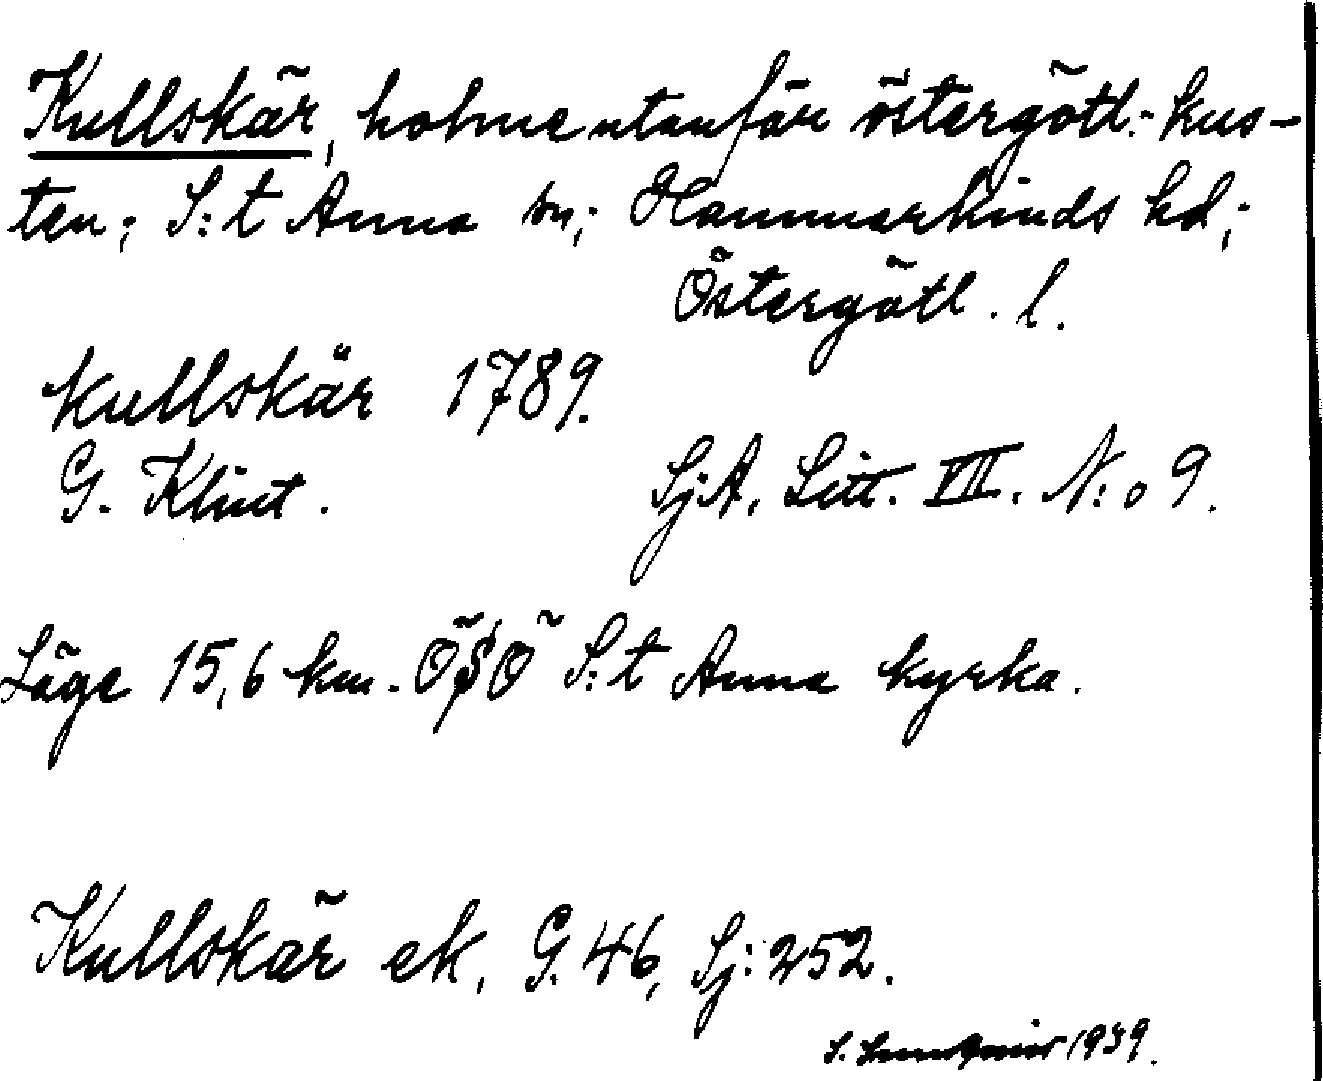 Kullskär, holme utanför östergötl:- kus-
ten; S:t Anna sn; Hammarkinds hd;-
Östergötl. l.
Kullskär 1789.
G. Klint. SjA, Litt. VII. N:o 9.
Läge 15,6 km. ÖSÖ S:t Anna kyrka.
Kullskär ek, G. 46, Sj: 252.
S. 1939.